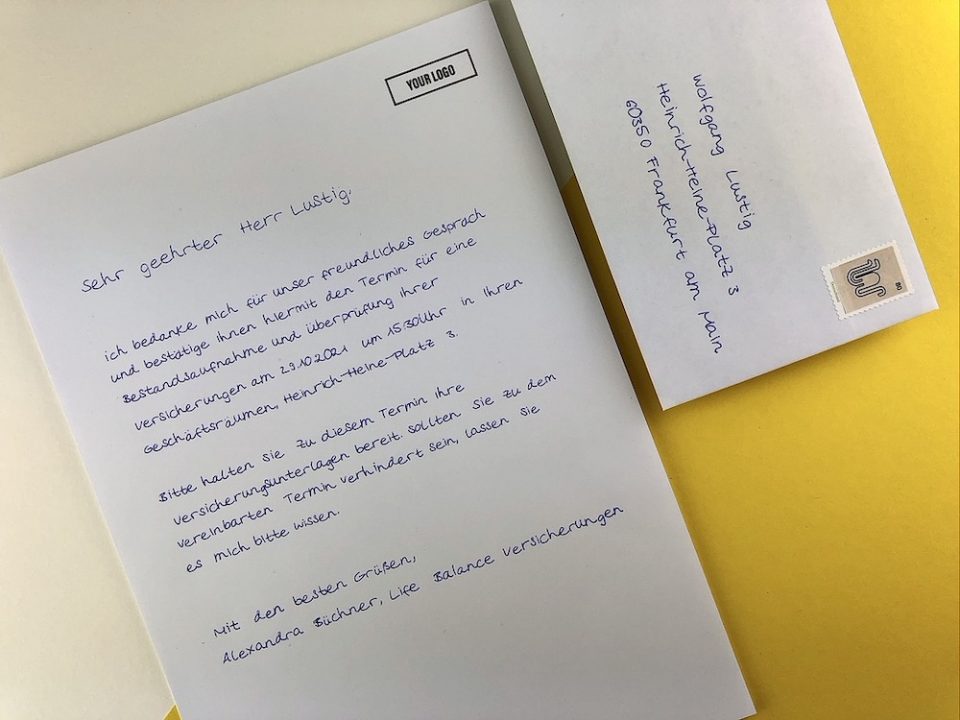 YOUR LOGO
Sehr geehrter Herr Lustig,
ich bedanke mich für unser freundliches Gespräch
und bestätige Ihnen hiermit den Termin für eine
Bestandsaufnahme und Überprüfung ihrer
Versicherungen am 29.10.2021 um 15:30Uhr in Ihren
Geschäftsräumen, Heinrich-Heine-Platz 3.
Bitte halten Sie zu diesem Termin ihre
Versicherungsunterlagen bereit. Sollten Sie zu dem
vereinbarten Termin verhindert sein, lassen Sie
es mich bitte wissen.
Mit den besten Grüßen,
Alexandra Büchner, Life Balance Versicherungen
Wolfgang Lustig
Heinrich-Heine-Platz 3
60350 Frankfurt am Main
80